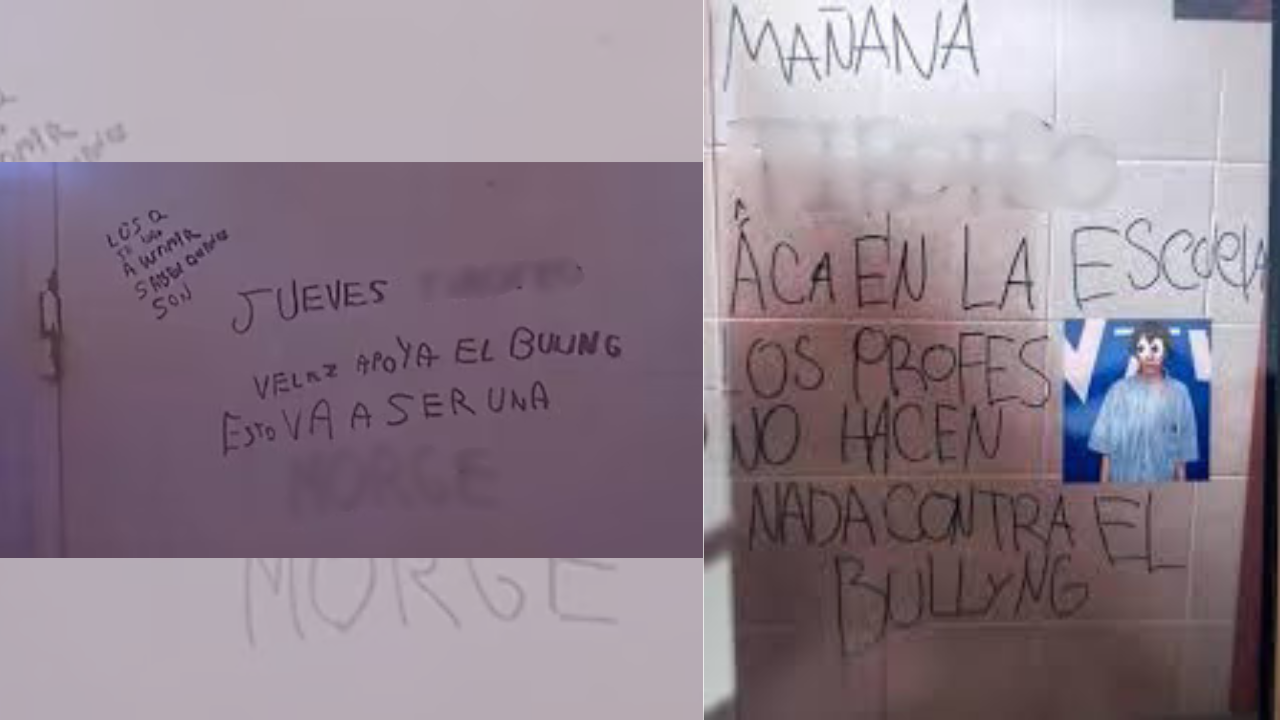 LOS Q
SABEN QUIENES
SON
JUEVES
VELEZ APOYA EL BULING
ESTO VA A SER UNA
MORGE
MORGE
MAÑANA
TIROTEO
ÁCA EN LA ESCUELA
LOS PROFES
NO HACEN
NADA CONTRA EL
BULLYNG